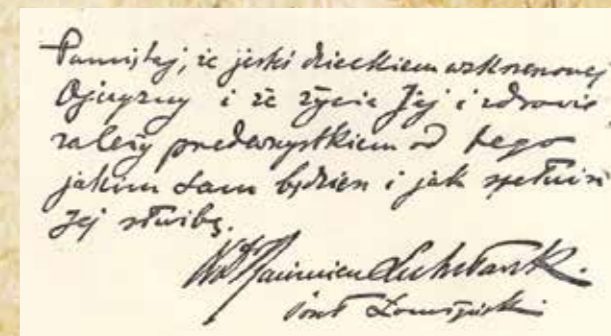 Pamiętaj, że jesteś dzieckiem wskrzeszonej
Ojczyzny i że życie Jej i zdrowie
zależy przedewszystkiem od tego
jakim sam będziesz i jak spełnisz
Jej służbę.
Kazimierz